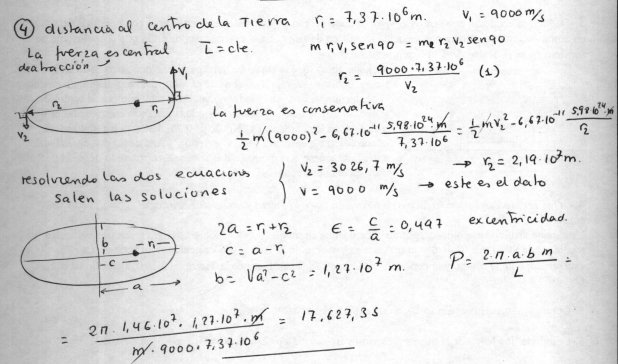 ④ distancia al centro de la Tierra r₁ = 7,37·10⁶ m. V₁ = 9000 m/s
La fuerza es central L̄ = cte. m r₁ v₁ sen90 = m r₂ v₂ sen90
de atracción
r₂ = 9000·7,37·10⁶ / V₂ (1)
V₁
r₂ r₁
V₂
La fuerza es conservativa
1/2 m(9000)² - 6,67·10⁻¹¹ 5,98·10²⁴·m / 7,37·10⁶ = 1/2 m V₂² - 6,67·10⁻¹¹ 5,98·10²⁴·m / r₂
resolviendo las dos ecuaciones { V₂ = 3026,7 m/s → r₂ = 2,19·10⁷ m.
salen las soluciones V = 9000 m/s → este es el dato
2a = r₁ + r₂ ε = c/a = 0,497 excentricidad.
c = a - r₁
b r₁
c
a
b = √(a² - c²) = 1,27·10⁷ m. P = 2·π·a·b m / L =
= 2π·1,46·10⁷·1,27·10⁷·m / m·9000·7,37·10⁶ = 17.627,3 s